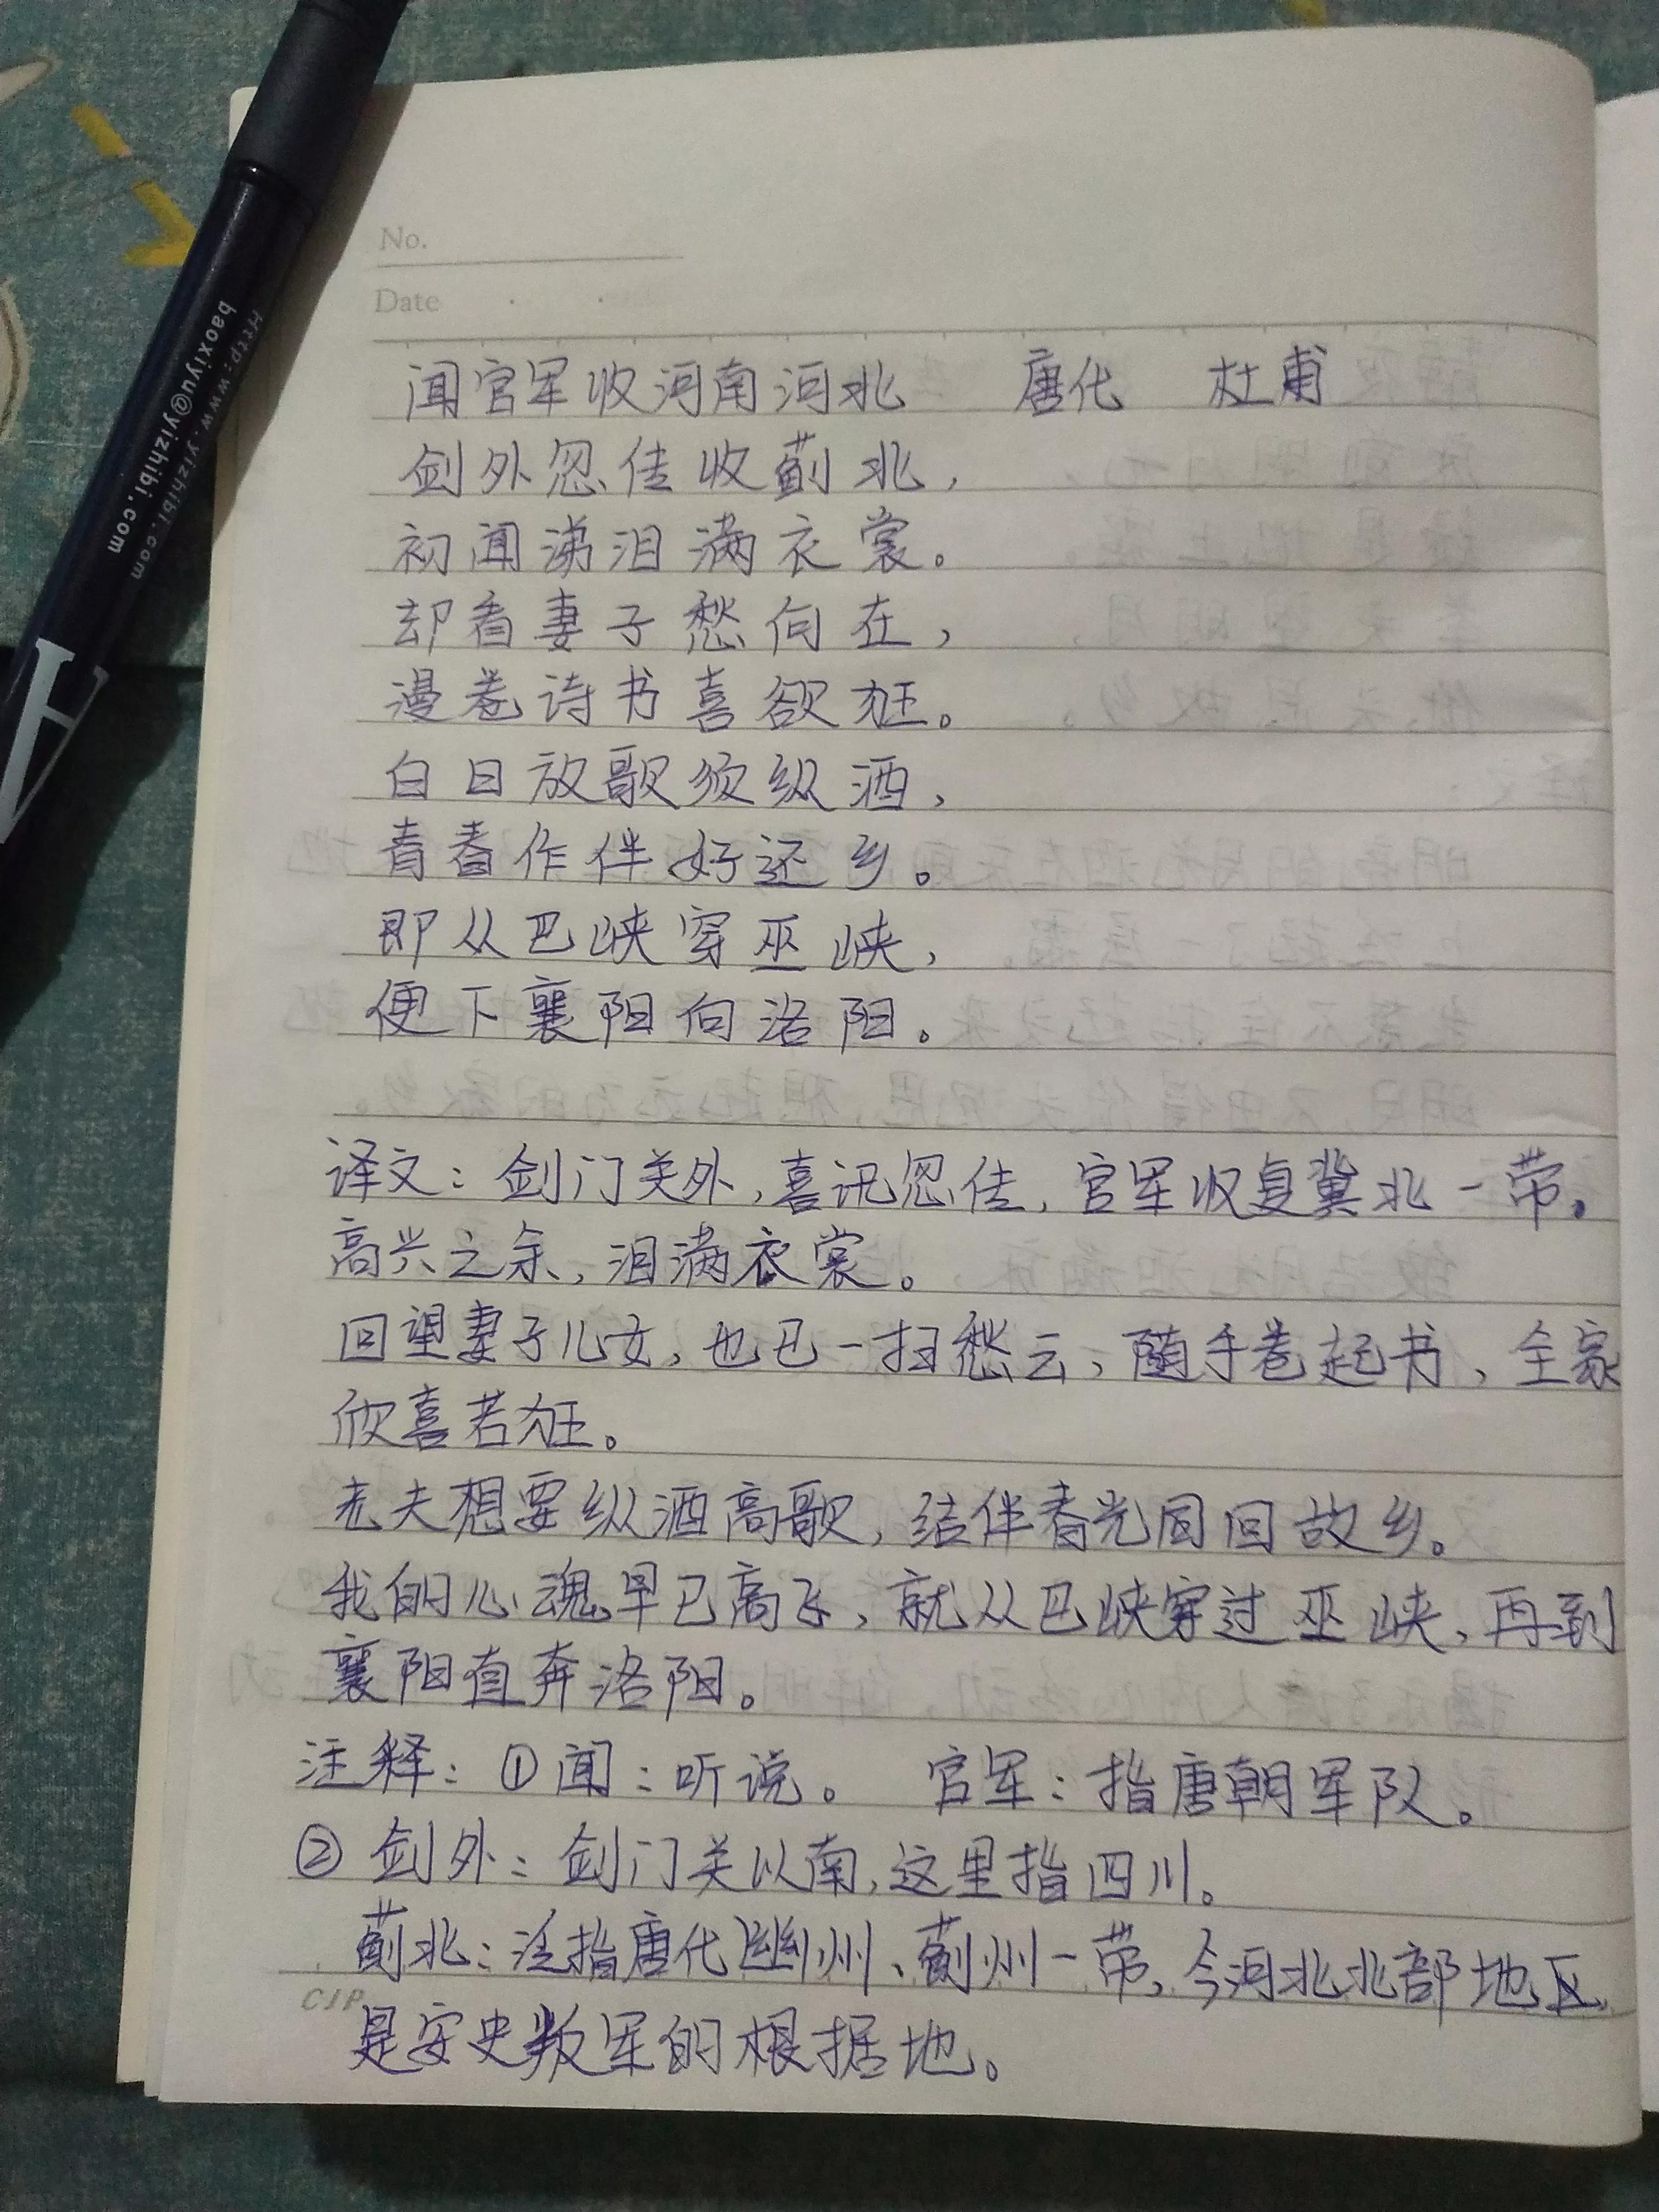 No.
Date
闻官军收河南河北 唐代 杜甫
剑外忽传收蓟北，
初闻涕泪满衣裳。
却看妻子愁何在，
漫卷诗书喜欲狂。
白日放歌须纵酒，
青春作伴好还乡。
即从巴峡穿巫峡，
便下襄阳向洛阳。
译文：剑门关外，喜讯忽传，官军收复冀北一带。
高兴之余，泪满衣裳。
回望妻子儿女，也已一扫愁云，随手卷起书，全家
欣喜若狂。
老夫想要纵酒高歌，结伴春光同回故乡。
我的心魂早已高飞，就从巴峡穿过巫峡，再到
襄阳直奔洛阳。
注释：①闻：听说。 官军：指唐朝军队。
②剑外：剑门关以南，这里指四川。
蓟北：泛指唐代幽州、蓟州一带，今河北北部地区，
是安史叛军的根据地。
CJP
Http:www.yizhibi.com
baoxiyu@yizhibi.com